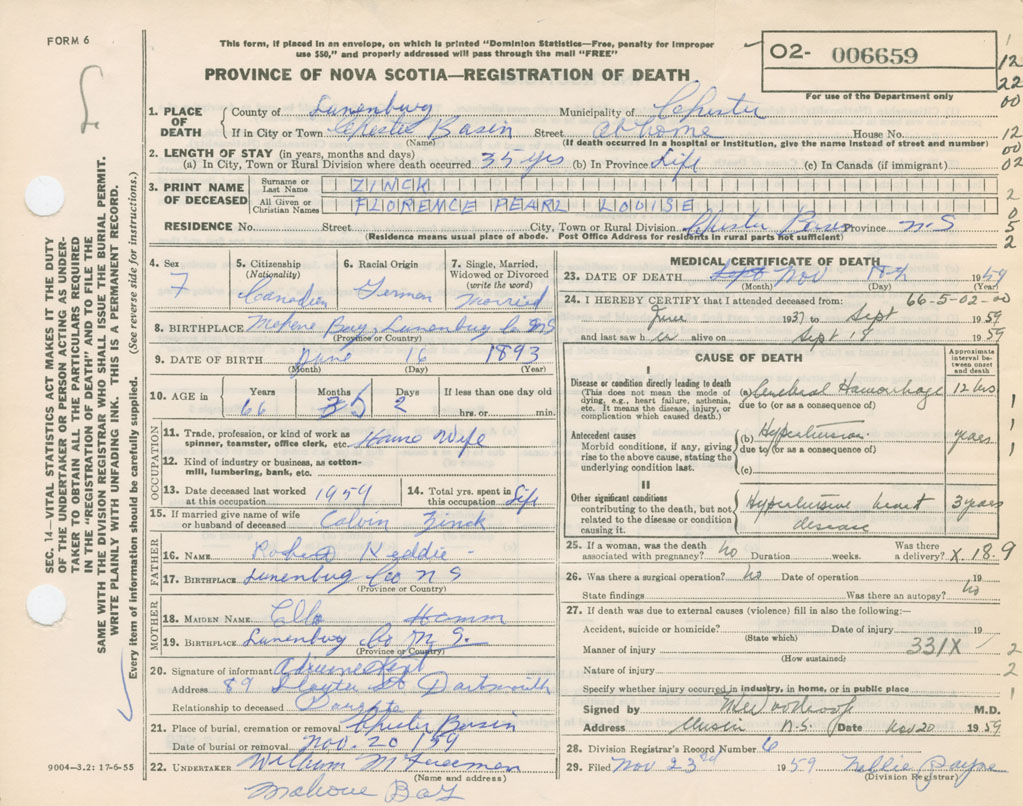 FORM 6
This form, if placed in an envelope, on which is printed "Dominion Statistics—Free, penalty for improper
use $50," and properly addressed will pass through the mail "FREE"
PROVINCE OF NOVA SCOTIA—REGISTRATION OF DEATH
O2- 006659
For use of the Department only
1
12
22
00
12
00
02
2
0
5
2
1. PLACE OF DEATH
County of Lunenburg Municipality of Chester
If in City or Town Chester Basin Street at home House No.
(Name) (If death occurred in a hospital or Institution, give the name instead of street and number)
2. LENGTH OF STAY (in years, months and days)
(a) In City, Town or Rural Division where death occurred 35 yrs (b) In Province Life (c) In Canada (if immigrant)
3. PRINT NAME OF DECEASED
Surname or Last Name ZINCK
All Given or Christian Names FLORENCE PEARL LOUISE
RESIDENCE No. Street City, Town or Rural Division Chester Basin Province N.S
(Residence means usual place of abode. Post Office Address for residents in rural parts not sufficient)
4. Sex F
5. Citizenship (Nationality) Canadian
6. Racial Origin German
7. Single, Married, Widowed or Divorced (write the word) Married
8. BIRTHPLACE Mahone Bay, Lunenburg Co NS
(Province or Country)
9. DATE OF BIRTH June 16 1893
(Month) (Day) (Year)
10. AGE in Years 66 Months 5 Days 2 If less than one day old hrs. or min.
OCCUPATION
11. Trade, profession, or kind of work as spinner, teamster, office clerk, etc. House Wife
12. Kind of industry or business, as cotton-mill, lumbering, bank, etc.
13. Date deceased last worked at this occupation 1959
14. Total yrs. spent in this occupation Life
15. If married give name of wife or husband of deceased Calvin Zinck
FATHER
16. NAME Robert Keddie
17. BIRTHPLACE Lunenburg Co N S
(Province or Country)
MOTHER
18. MAIDEN NAME Ella Hamm
19. BIRTHPLACE Lunenburg Co N.S.
(Province or Country)
20. Signature of informant
Address 89 St Dartmouth
Relationship to deceased Daughter
21. Place of burial, cremation or removal Chester Basin
Date of burial or removal Nov. 20/59
22. UNDERTAKER William M Freeman
(Name and address)
Mahone Bay
9004—3.2: 17-6-55
SEC. 14—VITAL STATISTICS ACT MAKES IT THE DUTY
OF THE UNDERTAKER OR PERSON ACTING AS UNDER-
TAKER TO OBTAIN ALL THE PARTICULARS REQUIRED
IN THE "REGISTRATION OF DEATH" AND TO FILE THE
SAME WITH THE DIVISION REGISTRAR WHO SHALL ISSUE THE BURIAL PERMIT.
WRITE PLAINLY WITH UNFADING INK. THIS IS A PERMANENT RECORD.
Every item of information should be carefully supplied. (See reverse side for instructions.)
MEDICAL CERTIFICATE OF DEATH
23. DATE OF DEATH Nov 18 1959
(Month) (Day) (Year)
24. I HEREBY CERTIFY that I attended deceased from: 66-5-02-00
June 1937 to Sept 1959
and last saw h er alive on Sept 18 1959
CAUSE OF DEATH
Approximate interval between onset and death
I
Disease or condition directly leading to death
(This does not mean the mode of dying, e.g., heart failure, asthenia, etc. It means the disease, injury, or complication which caused death.)
(a) Cerebral Hemorrhage 12 hrs
due to (or as a consequence of)
Antecedent causes
Morbid conditions, if any, giving rise to the above cause, stating the underlying condition last.
(b) Hypertension years
due to (or as a consequence of)
(c)
II
Other significant conditions contributing to the death, but not related to the disease or condition causing it.
Hypertensive heart disease 3 years
1
1
1
25. If a woman, was the death associated with pregnancy? No Duration weeks. Was there a delivery? X.18-9
26. Was there a surgical operation? No Date of operation 19
State findings Was there an autopsy? No
27. If death was due to external causes (violence) fill in also the following:—
Accident, suicide or homicide? Date of injury 19
(State which)
Manner of injury 331X
(How sustained)
Nature of injury
Specify whether injury occurred in industry, in home, or in public place
2
2
1
Signed by M.D.
Address N.S. Date Nov 20 1959
28. Division Registrar's Record Number 6
29. Filed Nov 23rd 1959 Nellie Payne
(Division Registrar)